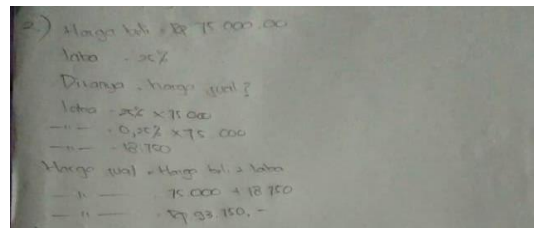 2.) Harga beli = Rp 75 000.00
laba = 25%
Ditanya = harga jual?
laba = 25% × 75 000
—〃— = 0,25% × 75 000
—〃— = 18.750
Harga jual = Harga beli + laba
—〃— = 75 000 + 18 750
—〃— = Rp 93.750,-